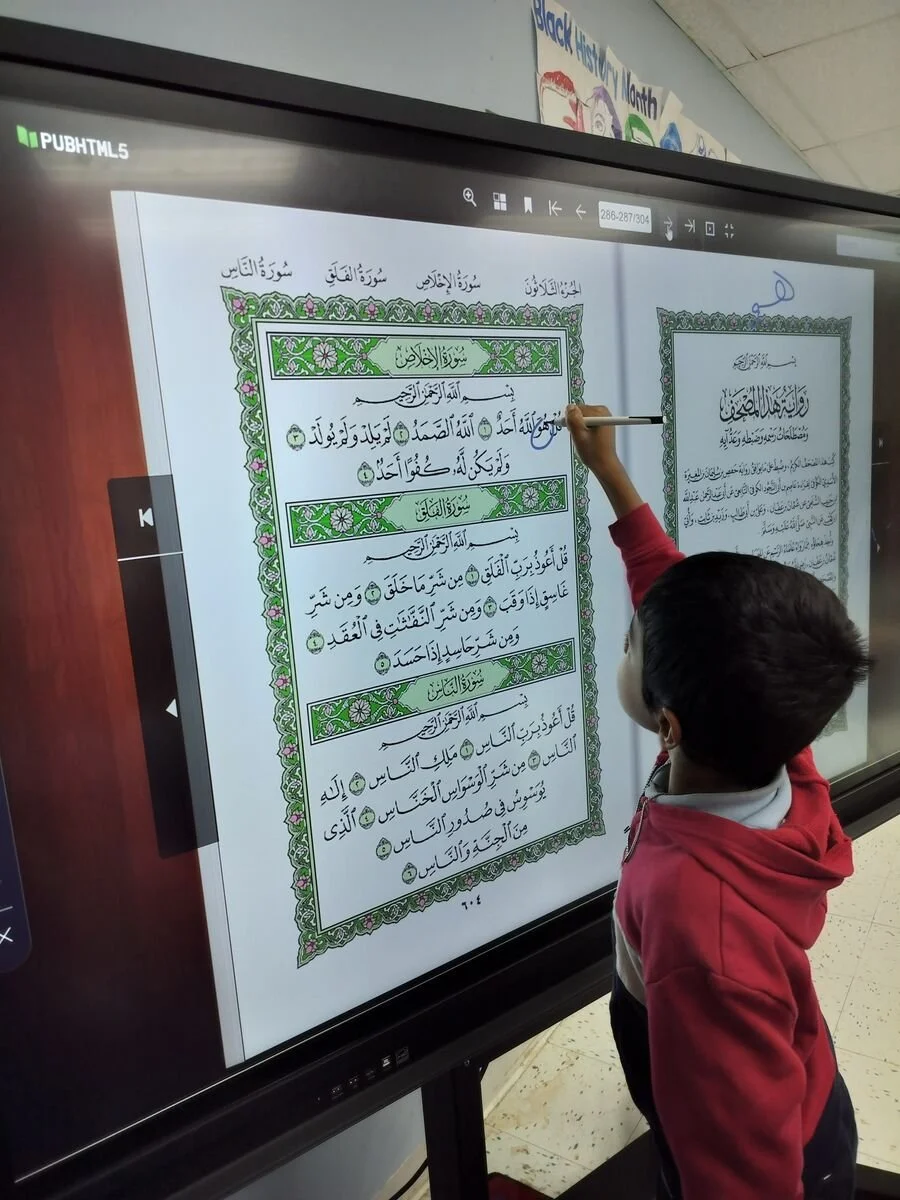 Black History Month
PUBHTML5
286-287/304
سُورَةُ النَّاسِ سُورَةُ الفَلَقِ سُورَةُ الإِخْلَاصِ الجُزْءُ الثَّلَاثُونَ
سُورَةُ الإِخْلَاصِ
بِسْمِ ٱللَّهِ ٱلرَّحْمَٰنِ ٱلرَّحِيمِ
قُلْ هُوَ ٱللَّهُ أَحَدٌ ١ ٱللَّهُ ٱلصَّمَدُ ٢ لَمْ يَلِدْ وَلَمْ يُولَدْ ٣
وَلَمْ يَكُن لَّهُۥ كُفُوًا أَحَدٌۢ ٤
سُورَةُ الفَلَقِ
بِسْمِ ٱللَّهِ ٱلرَّحْمَٰنِ ٱلرَّحِيمِ
قُلْ أَعُوذُ بِرَبِّ ٱلْفَلَقِ ١ مِن شَرِّ مَا خَلَقَ ٢ وَمِن شَرِّ
غَاسِقٍ إِذَا وَقَبَ ٣ وَمِن شَرِّ ٱلنَّفَّٰثَٰتِ فِى ٱلْعُقَدِ ٤
وَمِن شَرِّ حَاسِدٍ إِذَا حَسَدَ ٥
سُورَةُ النَّاسِ
بِسْمِ ٱللَّهِ ٱلرَّحْمَٰنِ ٱلرَّحِيمِ
قُلْ أَعُوذُ بِرَبِّ ٱلنَّاسِ ١ مَلِكِ ٱلنَّاسِ ٢ إِلَٰهِ
ٱلنَّاسِ ٣ مِن شَرِّ ٱلْوَسْوَاسِ ٱلْخَنَّاسِ ٤ ٱلَّذِى
يُوَسْوِسُ فِى صُدُورِ ٱلنَّاسِ ٥
مِنَ ٱلْجِنَّةِ وَٱلنَّاسِ ٦
٦٠٤
هو
بِسْمِ ٱللَّهِ ٱلرَّحْمَٰنِ ٱلرَّحِيمِ
رِوَايَةُ هَذَا المُصْحَفِ
وَمُصْطَلَحَاتُ رَسْمِهِ وَضَبْطِهِ وَعَدِّ آيِهِ